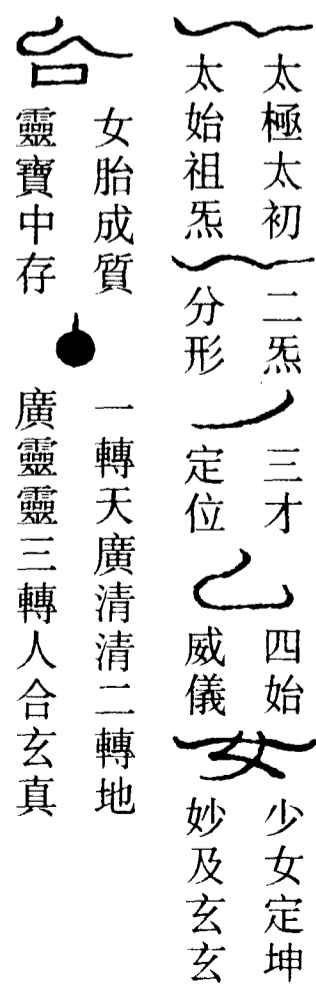 太極太初
太始祖炁
二炁
分形
三才
定位
四始
威儀
女
少女定坤
妙及玄玄
台
女胎成質
靈寶中存
一轉天廣清清二轉地
廣靈靈三轉人合玄真